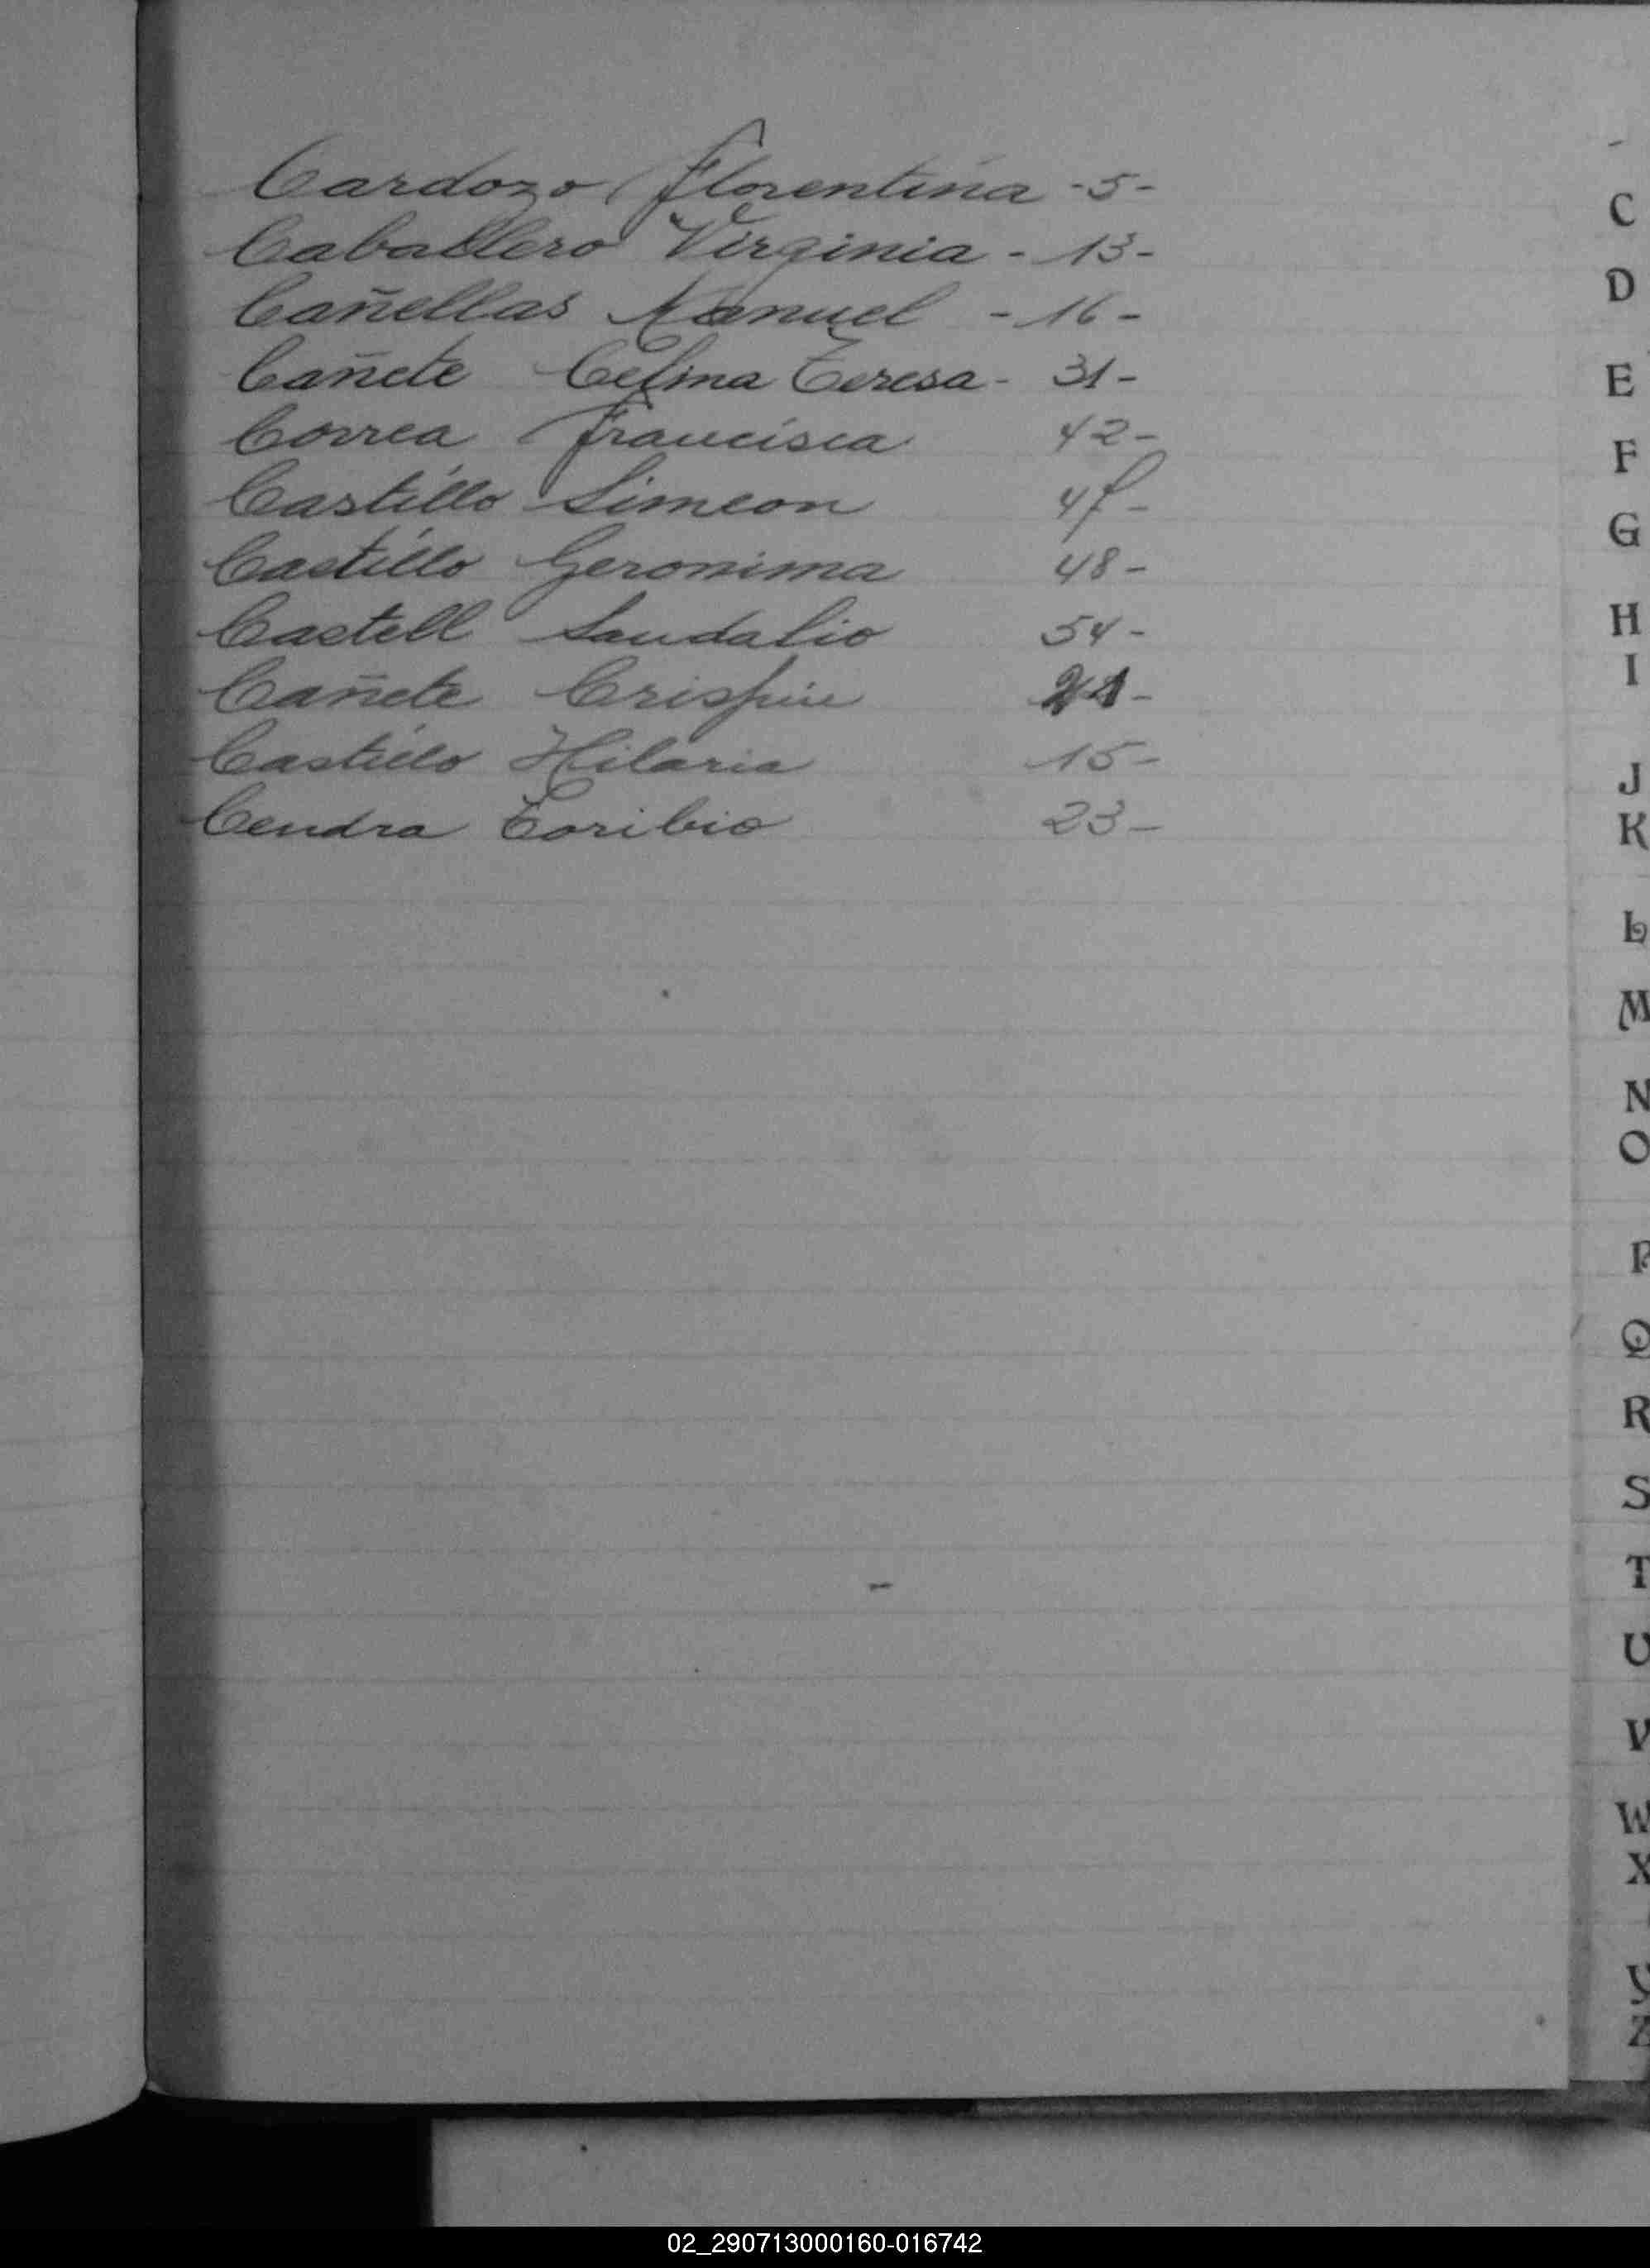 Cardozo Florentina - 5 -
Caballero Virginia - 13 -
Cañellas Manuel - 16 -
Cañete Celina Teresa - 31 -
Correa Francisca 42 -
Castillo Simeon 47 -
Castillo Geronima 48 -
Castell Sandalio 54 -
Cañete Crispin
Castillo Hilaria 15 -
Cendra Toribio 23 -
C
D
E
F
G
H
I
J
K
L
M
N
O
P
Q
R
S
T
U
V
W
X
Y
Z
02_290713000160-016742